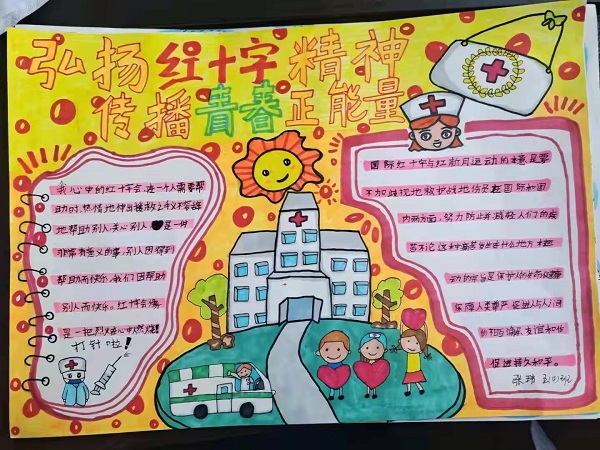 弘扬红十字精神
传播青春正能量
我心中的红十字会,在一个人需要帮
助时,热情地伸出援救之手,义不容辞
地帮助别人,关心别人,是一件
非常有意义的事,别人因得到
帮助而快乐,我们因帮助
别人而快乐。红十字会像
是一把烈火在心中燃烧!
打针啦!
国际红十字与红新月运动的本意是要
不加歧视地救护战地伤员在国际和国
内两方面,努力防止并减轻人们的疾
苦不论这种痛苦发生在什么地方本运
动的宗旨是保护人的生命和健康
保障人类尊严促进人与人间
的相互了解、友谊和合作
促进持久和平。
张玮